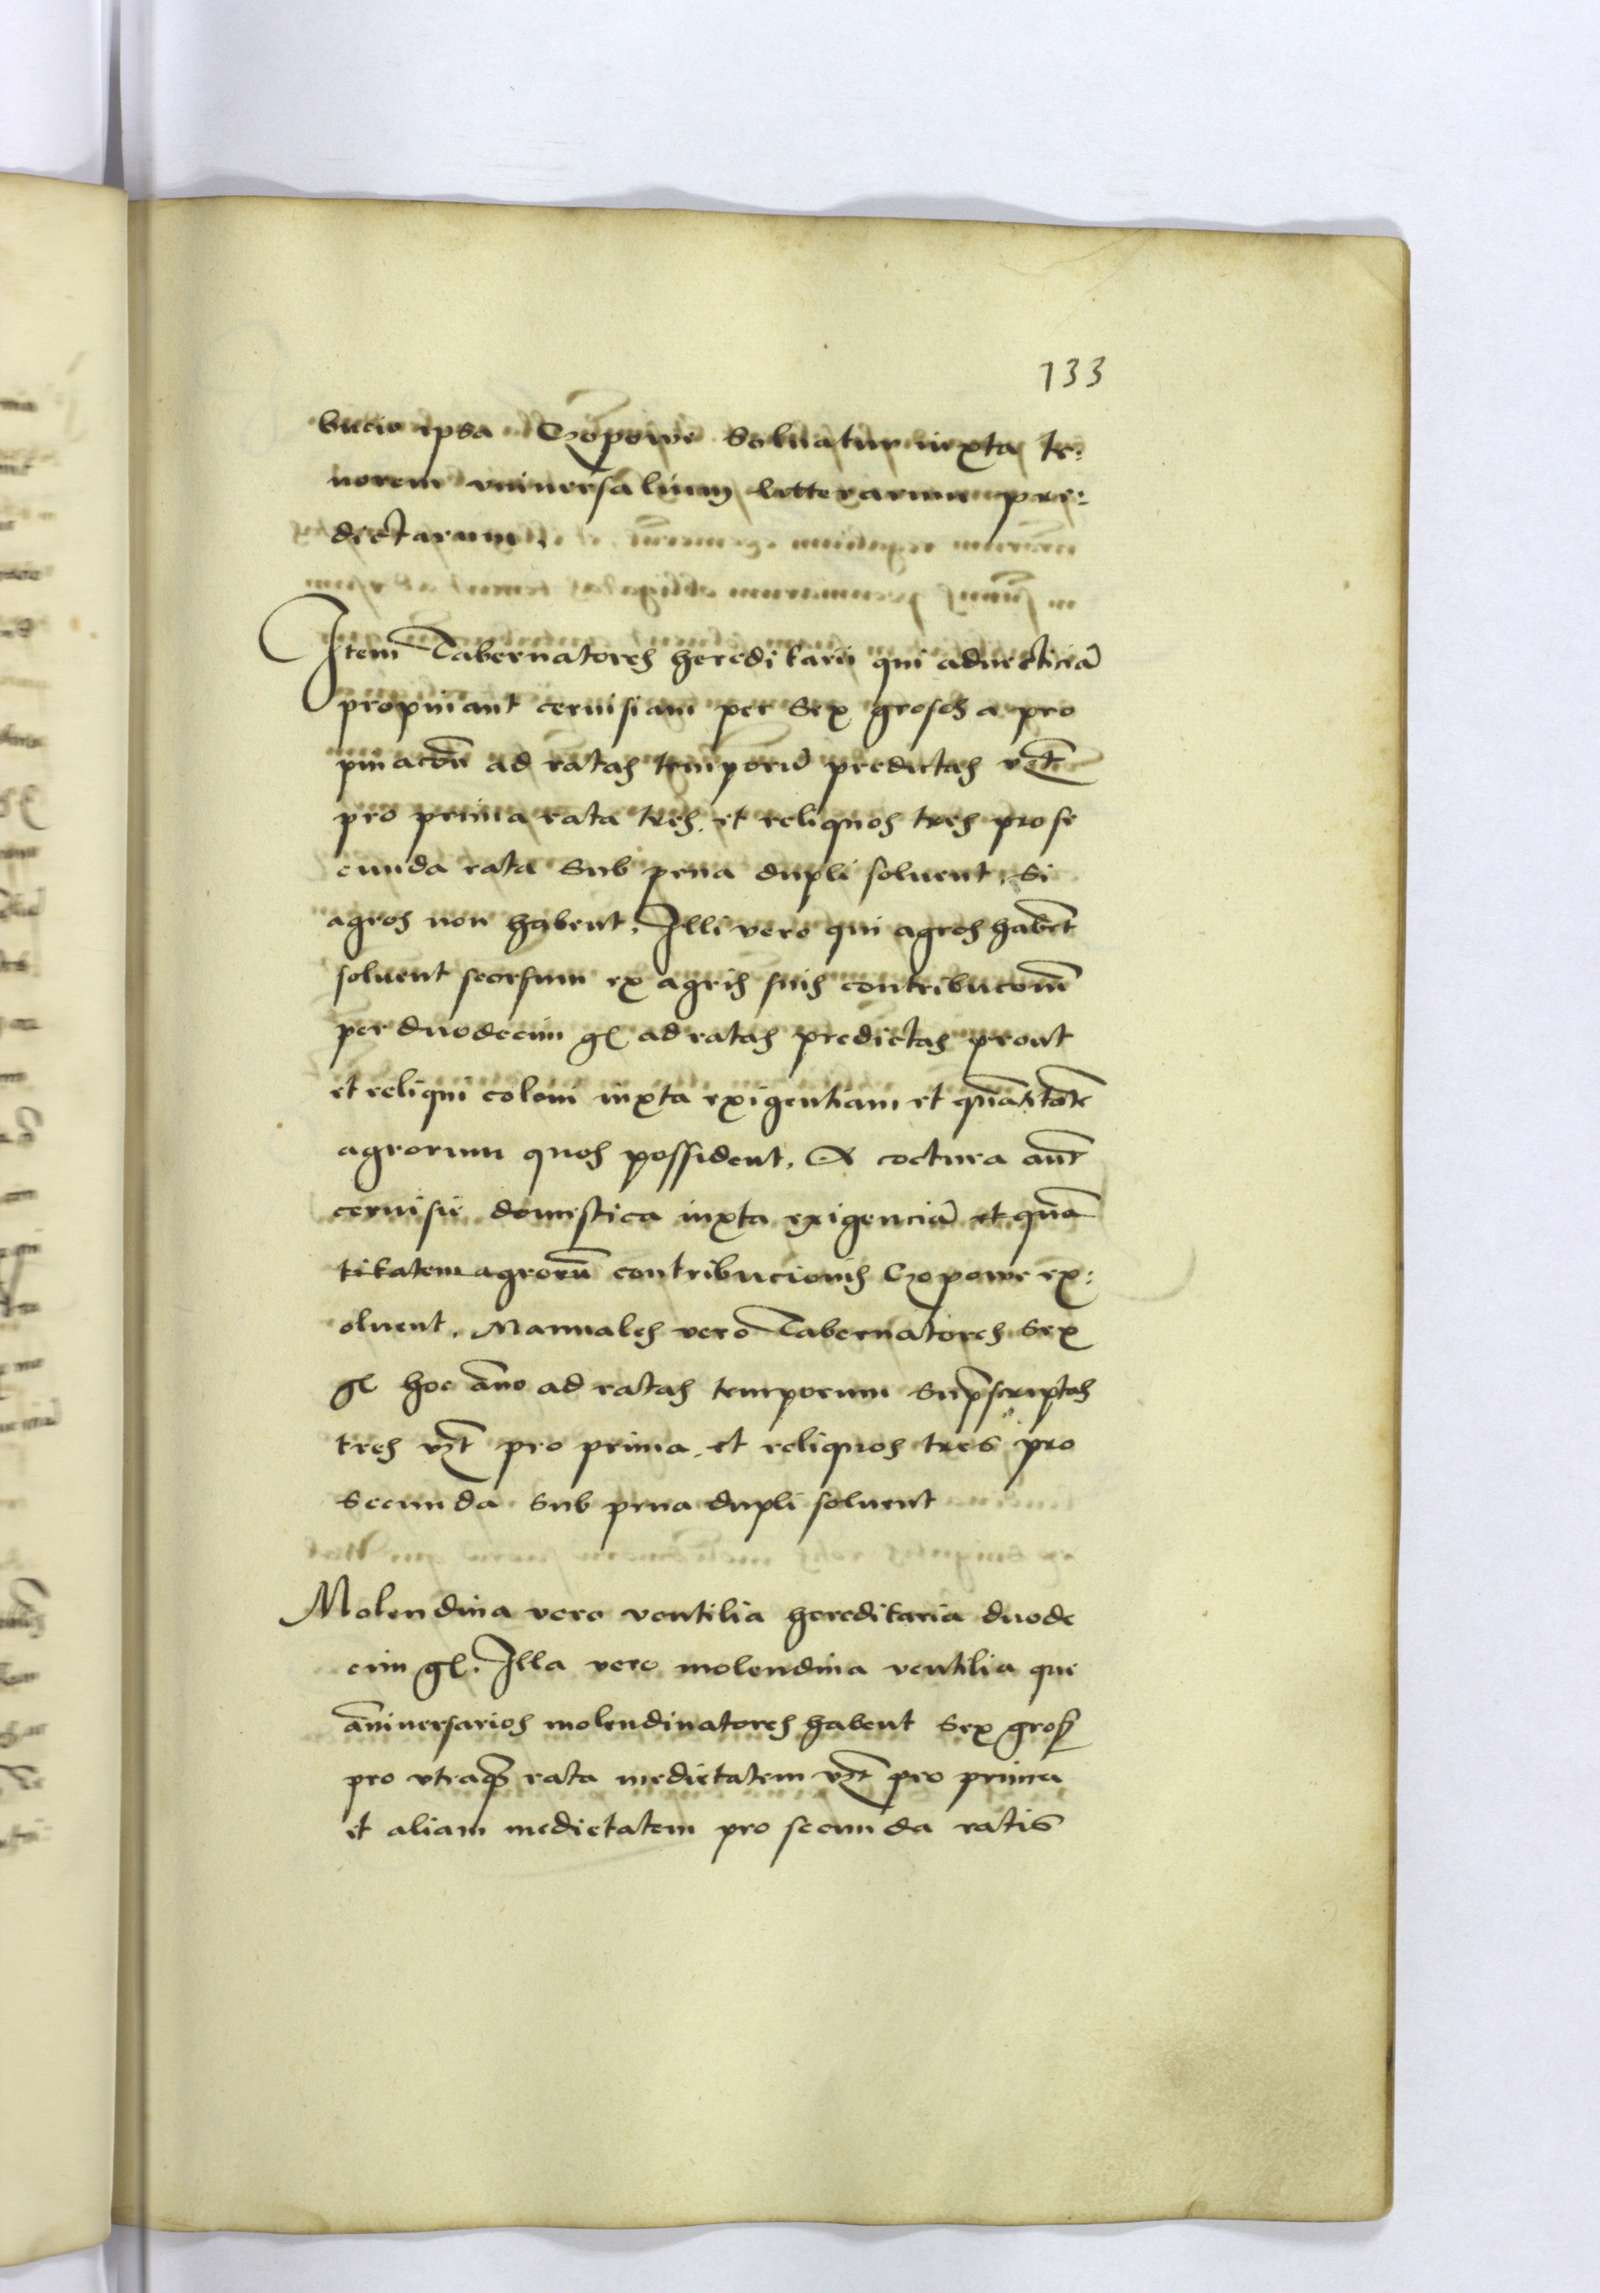 133
bucio ipsa Czopowe Soluatur iuxta te:
norem vniuersalium litterarum pre:
dictarum.
Item Tabernatores hereditarii qui aduecticiā
propinant ceruisiam per Sex grosos a pro
pinacōn ad ratas temporū predictas vꝫt
pro prima rata tres. et reliquos tres pro se
cunda rata Sub pena dupli soluent. Si
agros non habent. Illi vero qui agros habēt
soluent seorsum ex agris suis contribucōnē
per duodecim gℓ ad ratas predictas prout
et reliqui coloni iuxta exigentiam et quātitatē
agrorum quos possident. A coctura aūt
ceruisie domestica iuxta exigenciā et quā
titatem agrorū contribucionis Czopowe ex:
oluent. Manuales vero Tabernatores Sex
gℓ hoc āno ad ratas temporum Supscriptas
tres vꝫt pro prima. et reliquos tres pro
Secunda Sub pena dupli soluent
Molendina vero ventilia hereditaria duode
cim gℓ. Illa vero molendina ventilia que
āniuersarios molendinatores habent Sex gros
pro vtraqꝫ rata medietatem vꝫt pro prima
et aliam medietatem pro secunda ratis